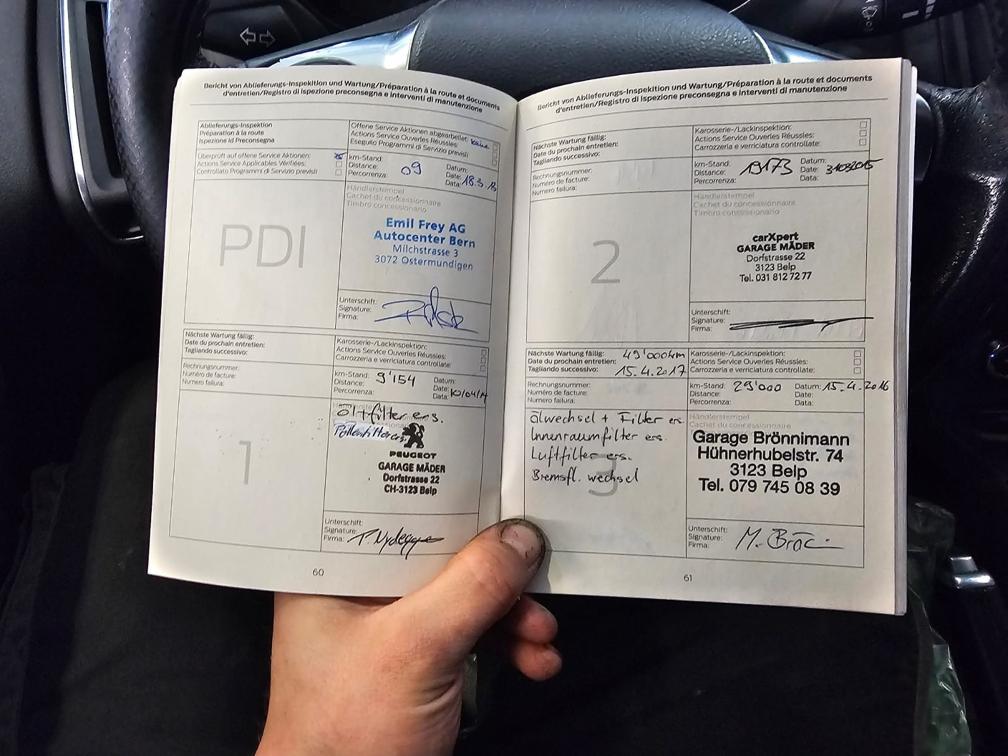 Bericht von Ablieferungs-Inspektion und Wartung/Préparation à la route et documents
d'entretien/Registro di ispezione preconsegna e interventi di manutenzione
Ablieferungs-Inspektion
Préparation à la route
Ispezione id Preconsegna
Offene Service Aktionen abgearbeitet: keine
Actions Service Ouvertes Réussies:
Eseguito Programmi di Servizio previsti
Überprüft auf offene Service Aktionen:
Actions Service Applicables Vérifiées:
Controllato Programmi di Servizio previsti
km-Stand: Datum:
Distance: 09 Date:
Percorrenza: Data: 18.3.
Händlerstempel
Cachet du concessionnaire
Timbro concessionario
PDI
Emil Frey AG
Autocenter Bern
Milchstrasse 3
3072 Ostermundigen
Unterschrift:
Signature:
Firma:
Nächste Wartung fällig:
Date du prochain entretien:
Tagliando successivo:
Karosserie-/Lackinspektion:
Actions Service Ouvertes Réussies:
Carrozzeria e verniciatura controllate:
Rechnungsnummer:
Numéro de facture:
Numero fattura:
km-Stand: Datum:
Distance: 9'154 Date:
Percorrenza: Data: 10/04/14
1
Öl+filter ers.
Pollenfilter ers
PEUGEOT
GARAGE MÄDER
Dorfstrasse 22
CH-3123 Belp
Unterschrift:
Signature:
Firma:
60
Bericht von Ablieferungs-Inspektion und Wartung/Préparation à la route et documents
d'entretien/Registro di ispezione preconsegna e interventi di manutenzione
Nächste Wartung fällig:
Date du prochain entretien:
Tagliando successivo:
Karosserie-/Lackinspektion:
Actions Service Ouvertes Réussies:
Carrozzeria e verniciatura controllate:
Rechnungsnummer:
Numéro de facture:
Numero fattura:
km-Stand: Datum:
Distance: 19173 Date:
Percorrenza: Data:
Händlerstempel
Cachet du concessionnaire
Timbro concessionario
2
carXpert
GARAGE MÄDER
Dorfstrasse 22
3123 Belp
Tel. 031 812 72 77
Unterschrift:
Signature:
Firma:
Nächste Wartung fällig: 49'000km
Date du prochain entretien:
Tagliando successivo: 15.4.2017
Karosserie-/Lackinspektion:
Actions Service Ouvertes Réussies:
Carrozzeria e verniciatura controllate:
Rechnungsnummer:
Numéro de facture:
Numero fattura:
km-Stand: 29'000 Datum: 15.4.2016
Distance: Date:
Percorrenza: Data:
Händlerstempel
Cachet du concessionnaire
3
ölwechsel + Filter ers.
Innenraumfilter ers.
Luftfilter ers.
Bremsfl. wechsel
Garage Brönnimann
Hühnerhubelstr. 74
3123 Belp
Tel. 079 745 08 39
Unterschrift:
Signature: M. Brö
Firma:
61